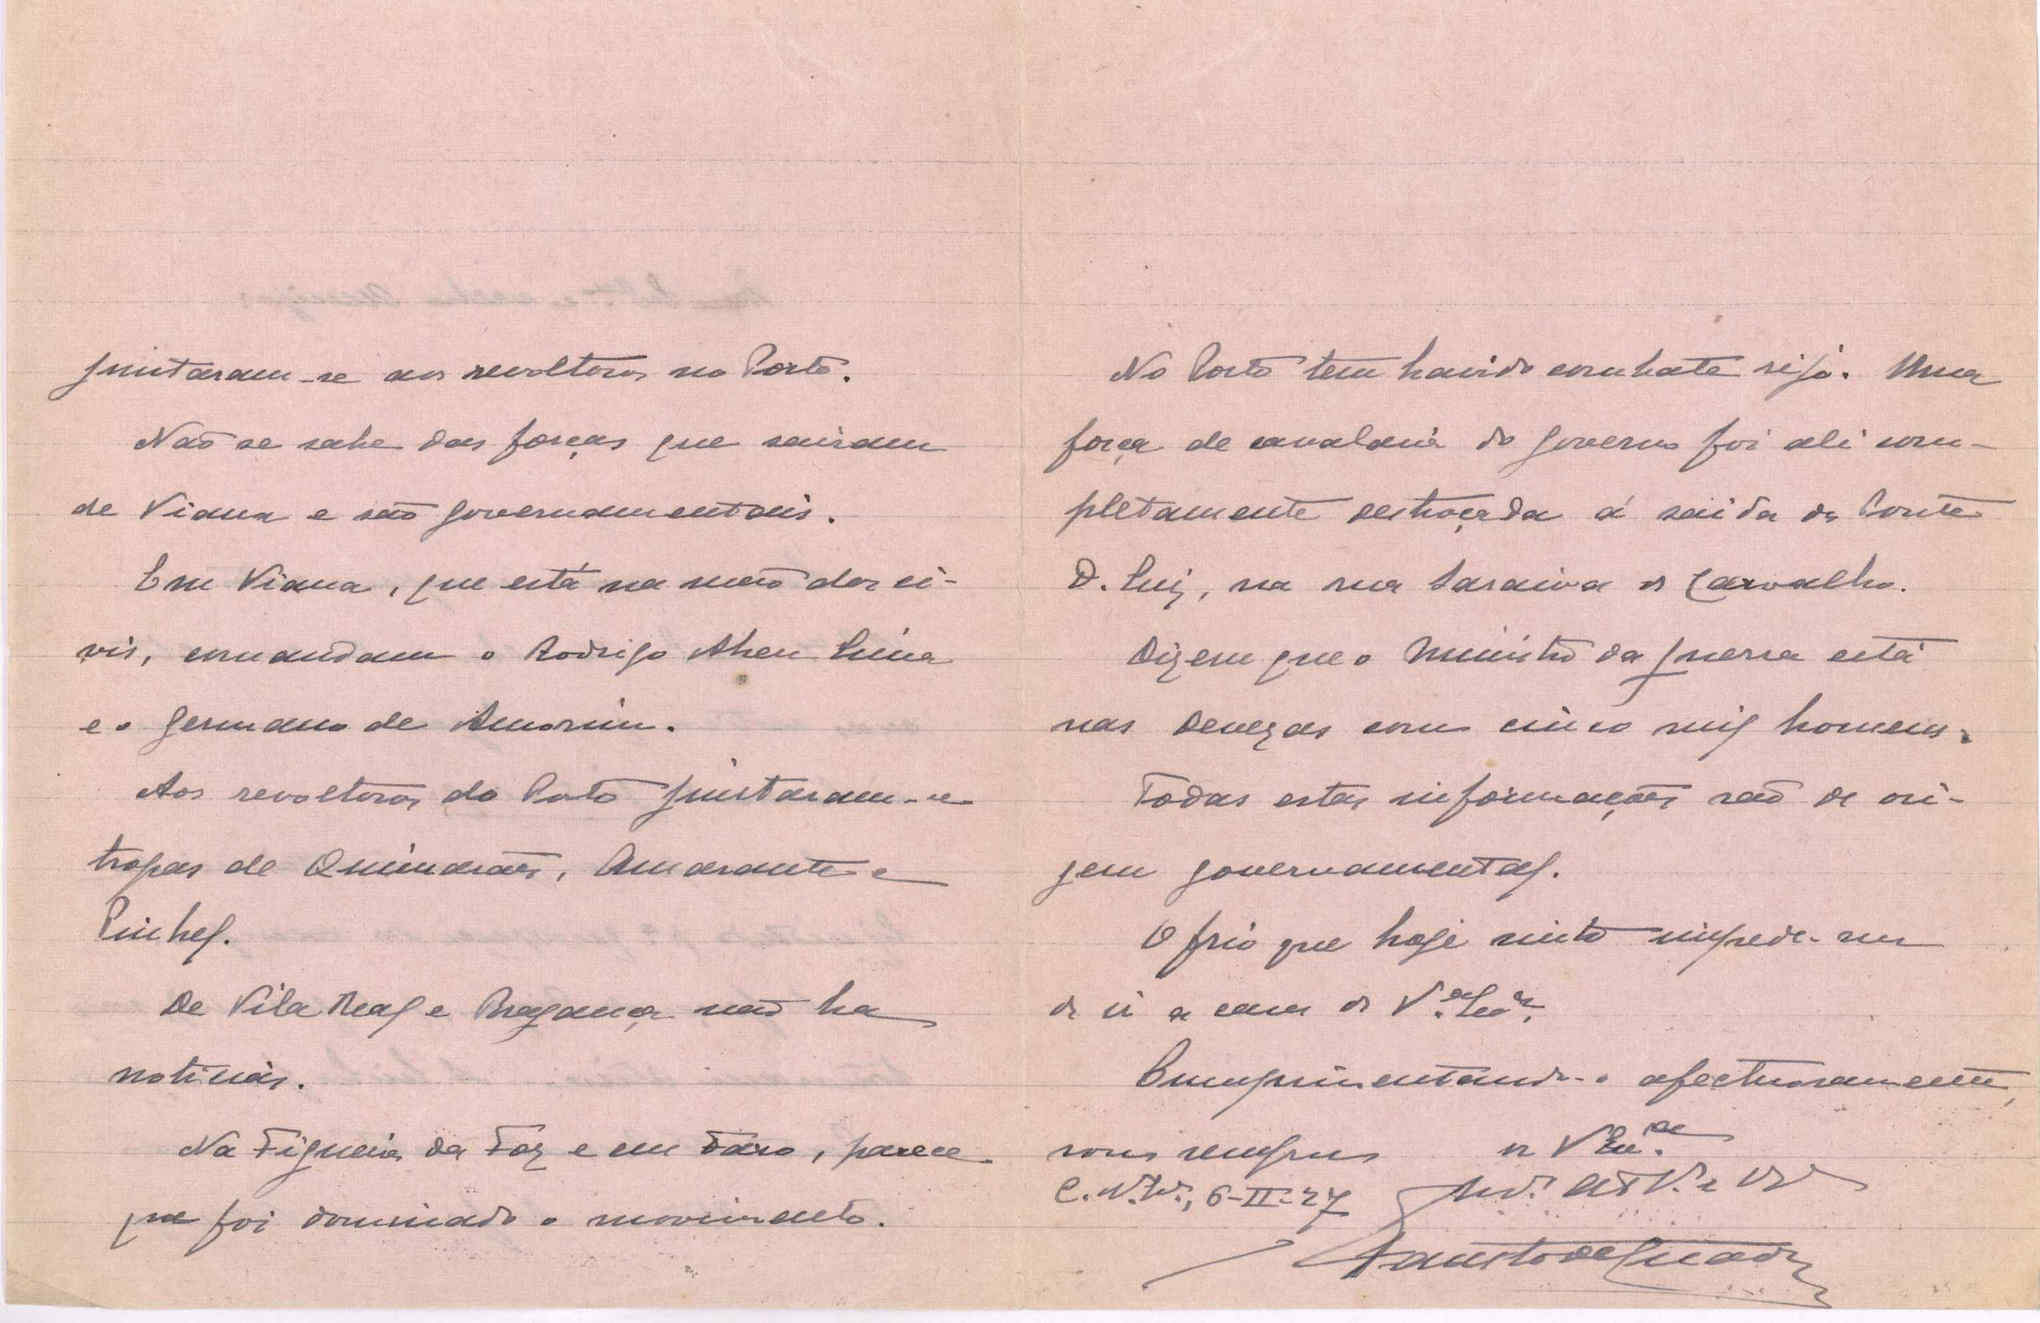 juntaram-se aos revoltosos no Porto.
Não se sabe das forças que sairam
de Viana e são governamentais.
Em Viana, que está na mão dos ci-
vis, comandam o Rodrigo Abreu Lima
e o Germano de Amorim.
Aos revoltosos do Porto juntaram-se
tropas de Guimarães, Amarante e
Pinhel.
De Vila Real e Bragança não ha
noticias.
Na Figueira da Foz e em Faro, parece
que foi dominado o movimento.
No Porto tem havido combate rijo. Uma
força de cavalaria do governo foi ali com-
pletamente destroçada á saida da Ponte
D. Luiz, na rua Saraiva de Carvalho.
Dizem que o Ministro da guerra está
nas Devezas com cinco mil homens.
Todas estas informações são de ori-
gem governamental.
O frio que hoje sinto impede-me
de ir a casa de V.
Cumprimentando-o afectuosamente,
sou sempre de V. Ex.
C. 6-II-27
Fausto de